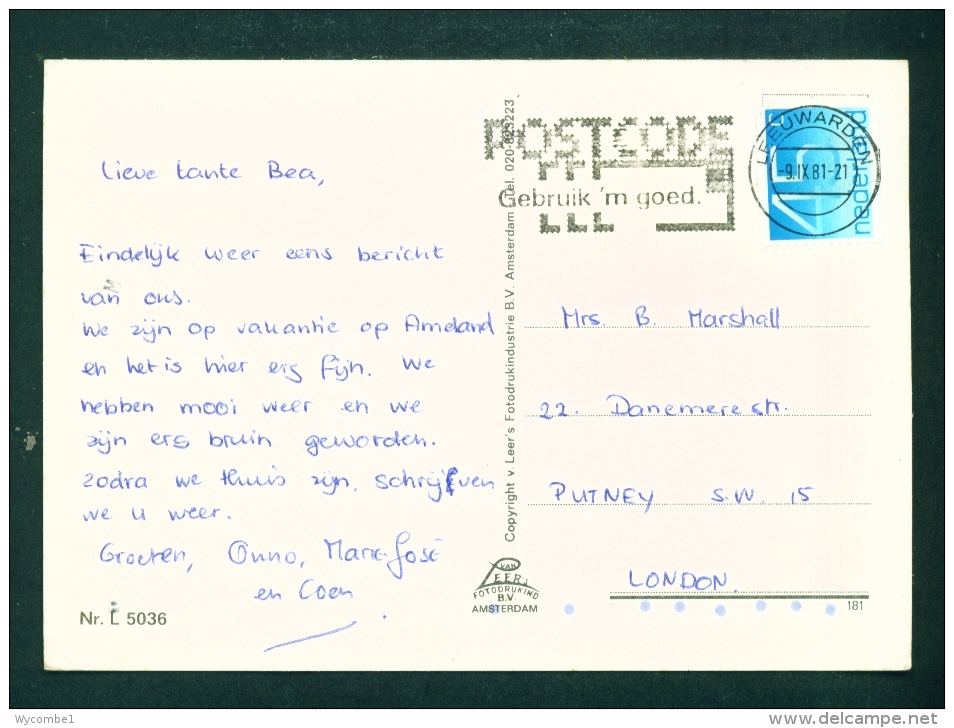 Lieve tante Bea,
Eindelijk weer eens bericht
van ons.
We zijn op vakantie op Ameland
en het is hier erg fijn. We
hebben mooi weer en we
zijn erg bruin geworden.
Zodra we thuis zijn, schrijven
we u weer.
Groeten, Onno, Marie-José
en Coen
Nr. L 5036
Copyright v. Leer's Fotodrukindustrie B.V. Amsterdam Tel. 020-823223
VAN
LEER'S
FOTODRUKIND
B.V.
AMSTERDAM
POSTCODE
Gebruik 'm goed.
LEEUWARDEN
-9.IX.81-21
45
nederland
Mrs. B. Marshall
22. Danemere str.
PUTNEY S.W. 15
LONDON.
181
Wycombe1
www.delcampe.net